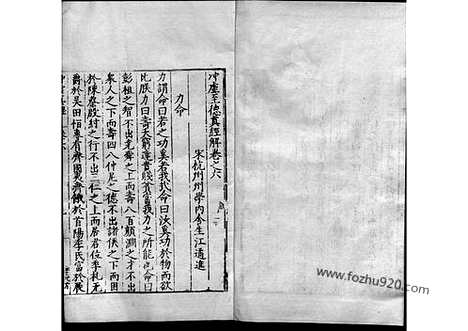 冲虛至德真經解卷之六
宋杭州州學內舍生江遹進
力命
力謂命曰若之功奚若我哉命曰汝奚功於物而欲
比朕力曰壽夭窮達貴賤貧富我力之所能也命曰
彭祖之智不出堯舜之上而壽八百顏淵之才不出
衆人之下而壽四八仲尼之德不出諸侯之下而困
於陳蔡殷紂之行不出三仁之上而居君位季札无
爵於吳田恒專有齊國夷齊餓於首陽季氏富於展
www.fozhu920.com